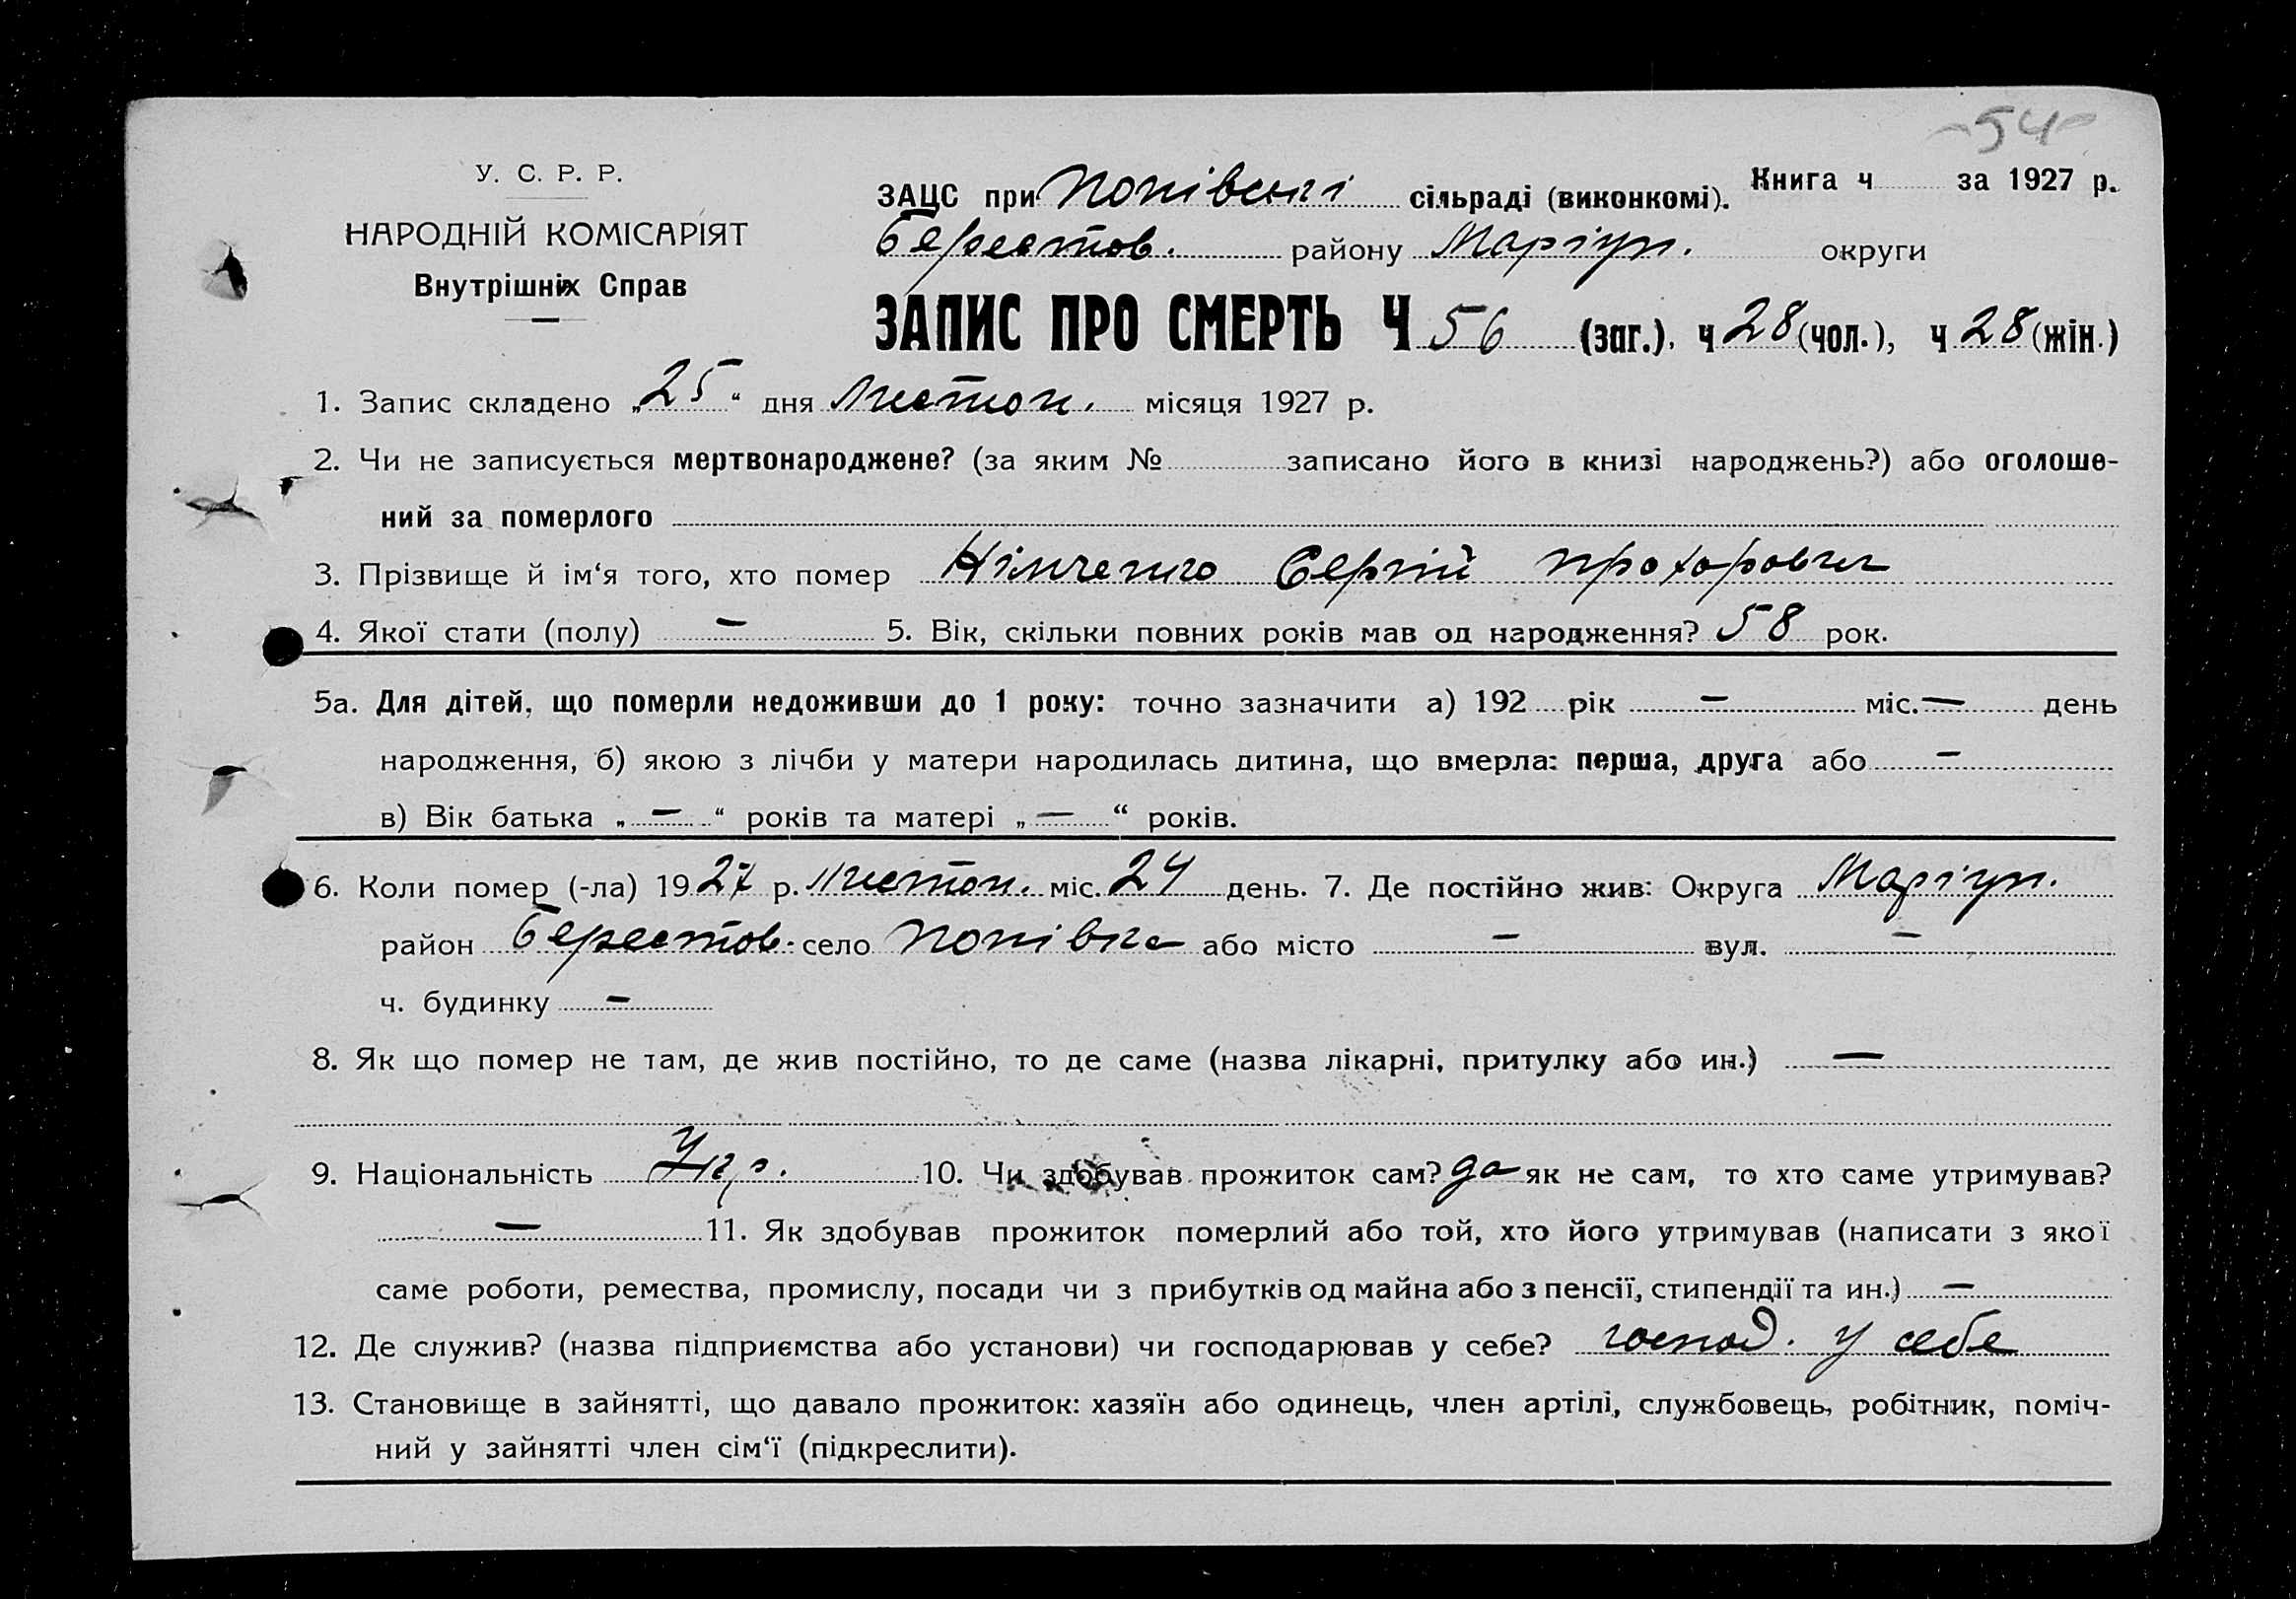 54
У. С. Р. Р.
НАРОДНІЙ КОМІСАРІЯТ
Внутрішніх Справ
ЗАЦС при Попівські сільраді (виконкомі). Книга ч за 1927 р.
Берестов. району Маріуп. округи
ЗАПИС ПРО СМЕРТЬ Ч 56 (заг.), ч 28 (чол.), ч 28 (жін.)
1. Запис складено „25“ дня листоп. місяця 1927 р.
2. Чи не записується мертвонароджене? (за яким № записано його в книзі народжень?) або оголоше-
ний за померлого
3. Прізвище й ім‘я того, хто помер Німченко Сергій Прохорович
4. Якої стати (полу) — 5. Вік, скільки повних років мав од народження? 58 рок.
5а. Для дітей, що померли недоживши до 1 року: точно зазначити а) 192 рік — міс. — день
народження, б) якою з лічби у матери народилась дитина, що вмерла: перша, друга або —
в) Вік батька „—“ років та матері „—“ років.
6. Коли помер (-ла) 1927 р. листоп. міс. 24 день. 7. Де постійно жив: Округа Маріуп.
район Берестов. село Попівка або місто — вул. —
ч. будинку —
8. Як що помер не там, де жив постійно, то де саме (назва лікарні, притулку або ин.) —
9. Національність Укр. 10. Чи здобував прожиток сам? да як не сам, то хто саме утримував?
— 11. Як здобував прожиток померлий або той, хто його утримував (написати з якої
саме роботи, ремества, промислу, посади чи з прибутків од майна або з пенсії, стипендії та ин.) —
12. Де служив? (назва підприємства або установи) чи господарював у себе? господ. у себе
13. Становище в зайнятті, що давало прожиток: хазяїн або одинець, член артілі, службовець, робітник, поміч-
ний у зайнятті член сім‘ї (підкреслити).